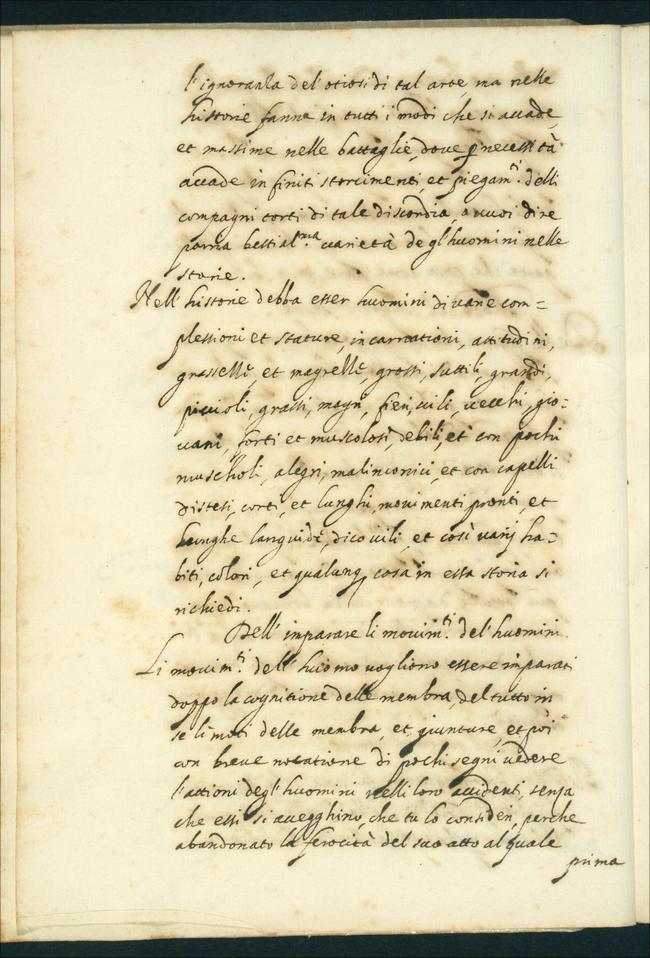 l'ignoranza del'otiosi di tal arte, ma nelle
historie fanne in tutti i modi che si accade,
et massime nelle battaglie, dove p necessità
accade infiniti storcimenti, et piegam.ti delli
compagni torti di tale discordia, o vuoi dire
parna bestial.ma varietà degl'huomini nelle
storie.
Nell'historie debba esser huomini di varie com=
plessioni et stature, incarnationi, attitudini,
grassellè, et magrellè, grossi, suttili, grandi,
piccioli, grassi, magri, fieri, vili, vecchi, gio-
vani, forti et muscolosi, debili, et con pochi
muscholi, alegri, malinconici, et con capelli
distesi, corti, et lunghi, movimenti pronti, et
lunghe languidè, dico vili, et così varij ha=
biti, colori, et qualunq cosa in essa storia si
richiedi.
Dell'imparare li movim.ti del'huomini.
Li movim.ti dell'huomo vogliono essere imparati
doppo la cognitione delle membra, del tutto in
se li moti delle menbra, et giunture, et poi
con breve notatione di pochi segni vedere
l'attioni degl'huomini nelli loro accidenti, senza
che essi si avegghino, che tu lo consideri, perche
abandonato la ferocità del suo atto al quale
prima